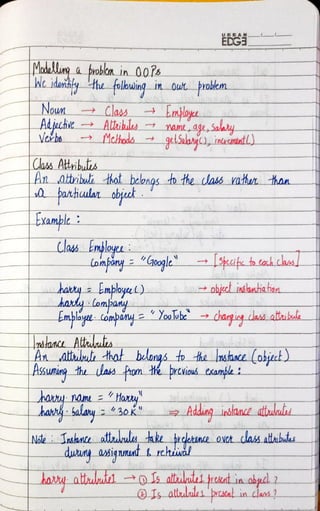 URBAN
EDGE
Modelling a problem in OOPs
We identify the following in our problem
Noun → Class → Employee
Adjective → Attributes → name, age, Salary
Verbs → Methods → getSalary(), increment()
Class Attributes
An attribute that belongs to the class rather than
a particular object.
Example :
Class Employee :
Company = "Google" → [Specific to each class]
harry = Employee() → object instantiation
harry. Company
Employee. company = "YouTube" → changing class attribute
Instance Attributes
An attribute that belongs to the Instance (object)
Assuming the class from the previous example :
harry. name = "Harry"
harry. Salary = "30K" ⇒ Adding instance attributes
Note : Instance attributes take preference over class attributes
during assignment & retrieval
harry. attribute1 → ① Is attribute1 present in object ?
② Is attribute1 present in class ?